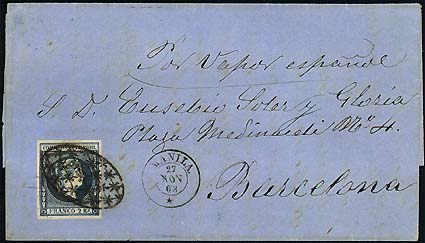 Por Vapor español
S. D. Eusebio Soler y Gloria
Plaza Medinaceli Nº 4.
Barcelona
MANILA
27
NOV
63
CORREOS
FRANCO 2 Rs